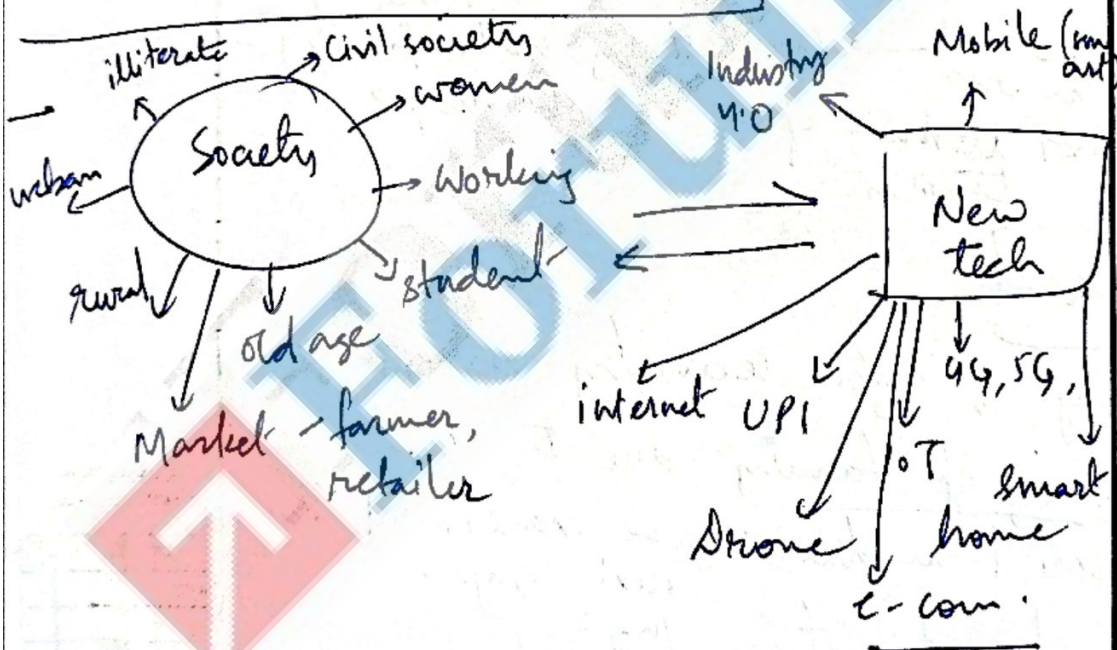 illiterate
Civil society
women
Society
Working
student
urban
rural
old age
Market - farmer,
retailer
Industry
4.0
Mobile
New
tech
internet
UPI
4G, 5G,
Drone
smart
home
e-com.
Forum